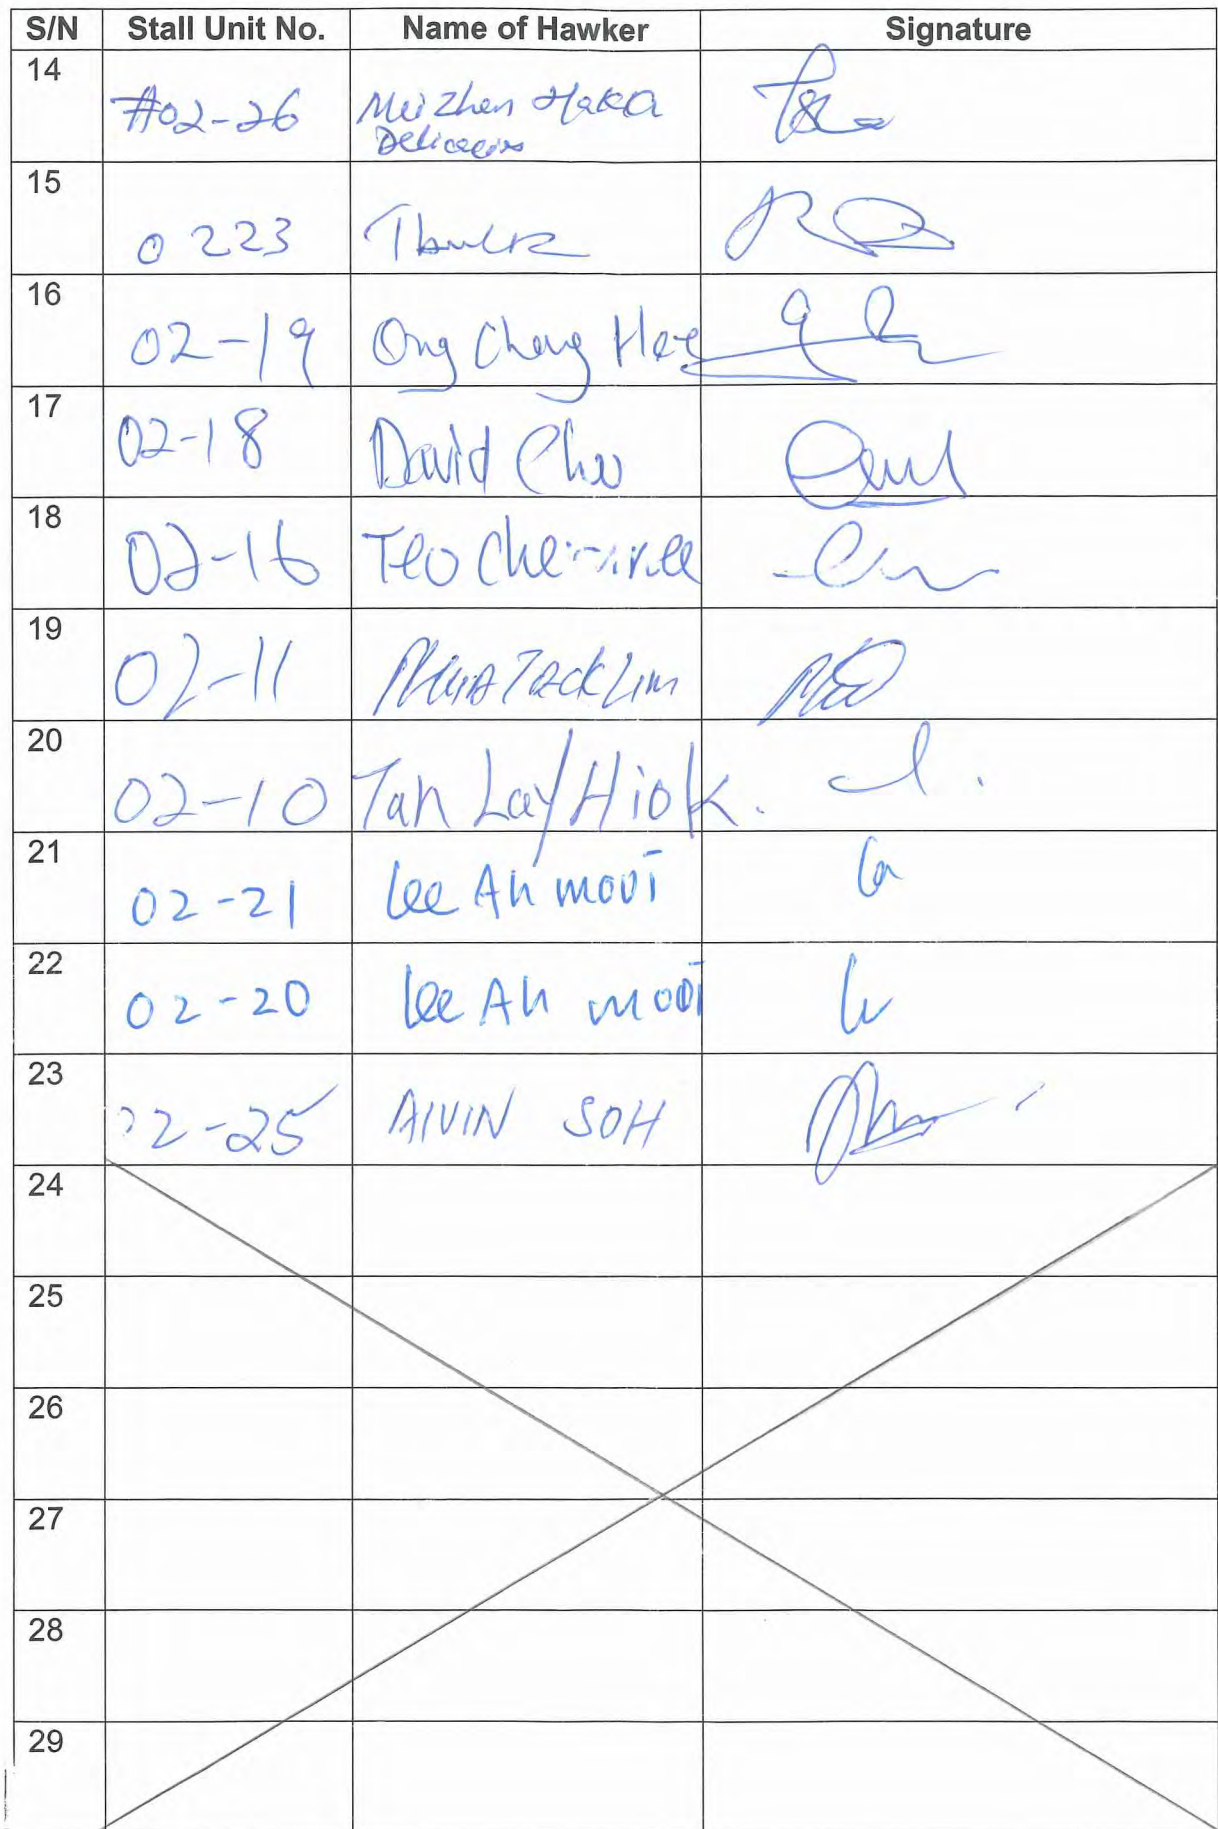 S/N Stall Unit No. Name of Hawker Signature
14 #02-26 Mei Zhen Haka
Delicacies
15 0 223
16 02-19 Ong Cheng Hee
17 02-18 David Choo
18 02-16 Teo
19 02-11 Teck Lim
20 02-10 Tan Lay Hiok.
21 02-21 Lee Ah mooi
22 02-20 Lee Ah mooi
23 02-25 AlVIN SOH
24
25
26
27
28
29